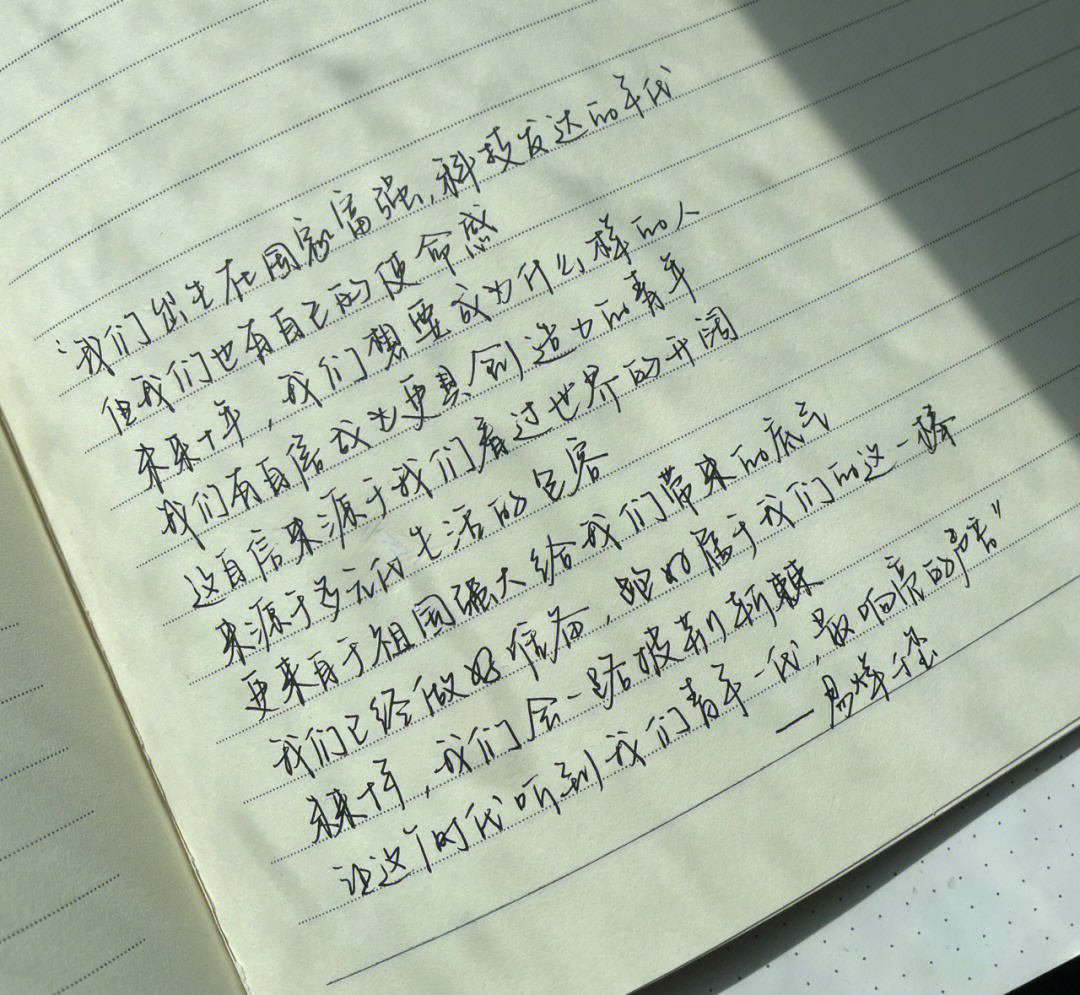 “我们出生在国家富强，科技发达的年代
但我们也有自己的使命感
未来十年，我们想要成为什么样的人
我们有自信成为更具创造力的青年
这自信来源于我们看过世界的开阔
来源于多元化生活的包容
更来自于祖国强大给我们带来的底气
我们已经做好准备，跑好属于我们的这一棒
未来十年，我们会一路披荆斩棘
让这个时代听到我们青年一代，最响亮的声音”
—易烊千玺